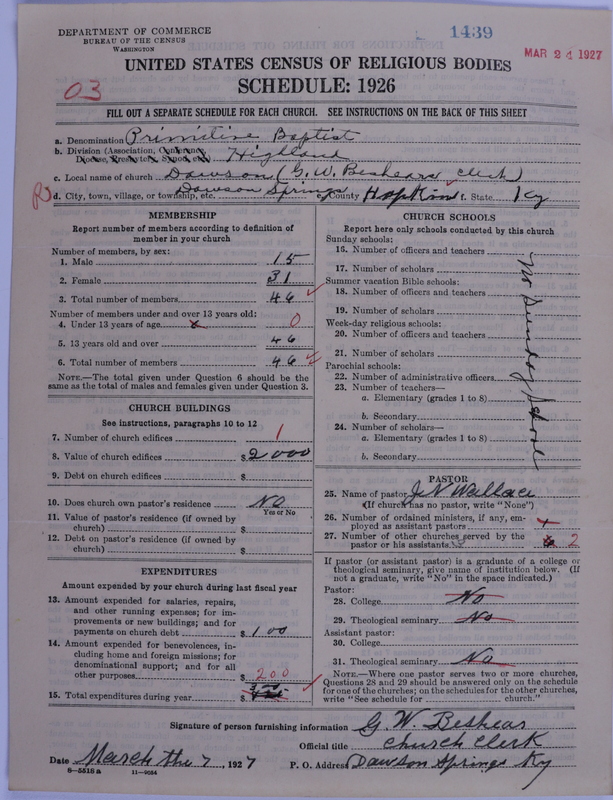 DEPARTMENT OF COMMERCE
BUREAU OF THE CENSUS
WASHINGTON
1439
MAR 24 1927
UNITED STATES CENSUS OF RELIGIOUS BODIES
SCHEDULE: 1926
03
FILL OUT A SEPARATE SCHEDULE FOR EACH CHURCH. SEE INSTRUCTIONS ON THE BACK OF THIS SHEET
a. Denomination Primitive Baptist
b. Division (Association, Conference, Diocese, Presbytery, Synod, etc.) Highland
c. Local name of church Dawson (G. W. Beshears Clerk)
d. City, town, village, or township, etc. Dawson Springs e. County Hopkins f. State Ky
MEMBERSHIP
Report number of members according to definition of
member in your church
Number of members, by sex:
1. Male 15
2. Female 31
3. Total number of members 46
Number of members under and over 13 years old:
4. Under 13 years of age x 0
5. 13 years old and over 46
6. Total number of members 46
NOTE.—The total given under Question 6 should be the
same as the total of males and females given under Question 3.
CHURCH BUILDINGS
See instructions, paragraphs 10 to 12
7. Number of church edifices 1
8. Value of church edifices $2000
9. Debt on church edifices $
10. Does church own pastor's residence No
Yes or No
11. Value of pastor's residence (if owned by
church) $
12. Debt on pastor's residence (if owned by
church) $
EXPENDITURES
Amount expended by your church during last fiscal year
13. Amount expended for salaries, repairs,
and other running expenses; for im-
provements or new buildings; and for
payments on church debt $100
14. Amount expended for benevolences, in-
cluding home and foreign missions; for
denominational support; and for all
other purposes $200
15. Total expenditures during year $
CHURCH SCHOOLS
Report here only schools conducted by this church
Sunday schools:
16. Number of officers and teachers
17. Number of scholars
Summer vacation Bible schools:
18. Number of officers and teachers
19. Number of scholars
Week-day religious schools:
20. Number of officers and teachers
21. Number of scholars
Parochial schools:
22. Number of administrative officers
23. Number of teachers—
a. Elementary (grades 1 to 8)
b. Secondary
24. Number of scholars—
a. Elementary (grades 1 to 8)
b. Secondary
No Sunday School
PASTOR
25. Name of pastor J. N Wallace
(If church has no pastor, write "None")
26. Number of ordained ministers, if any, em-
ployed as assistant pastors
27. Number of other churches served by the
pastor or his assistants 2
If pastor (or assistant pastor) is a graduate of a college or
theological seminary, give name of institution below. (If
not a graduate, write "No" in the space indicated.)
Pastor:
28. College No
29. Theological seminary No
Assistant pastor:
30. College
31. Theological seminary No
NOTE.—Where one pastor serves two or more churches,
Questions 28 and 29 should be answered only on the schedule
for one of the churches; on the schedules for the other churches,
write "See schedule for church."
Signature of person furnishing information G. W. Beshear
Official title Church Clerk
Date March the 7, 1927 P. O. Address Dawson Springs Ky
8—5518 a 11—9054